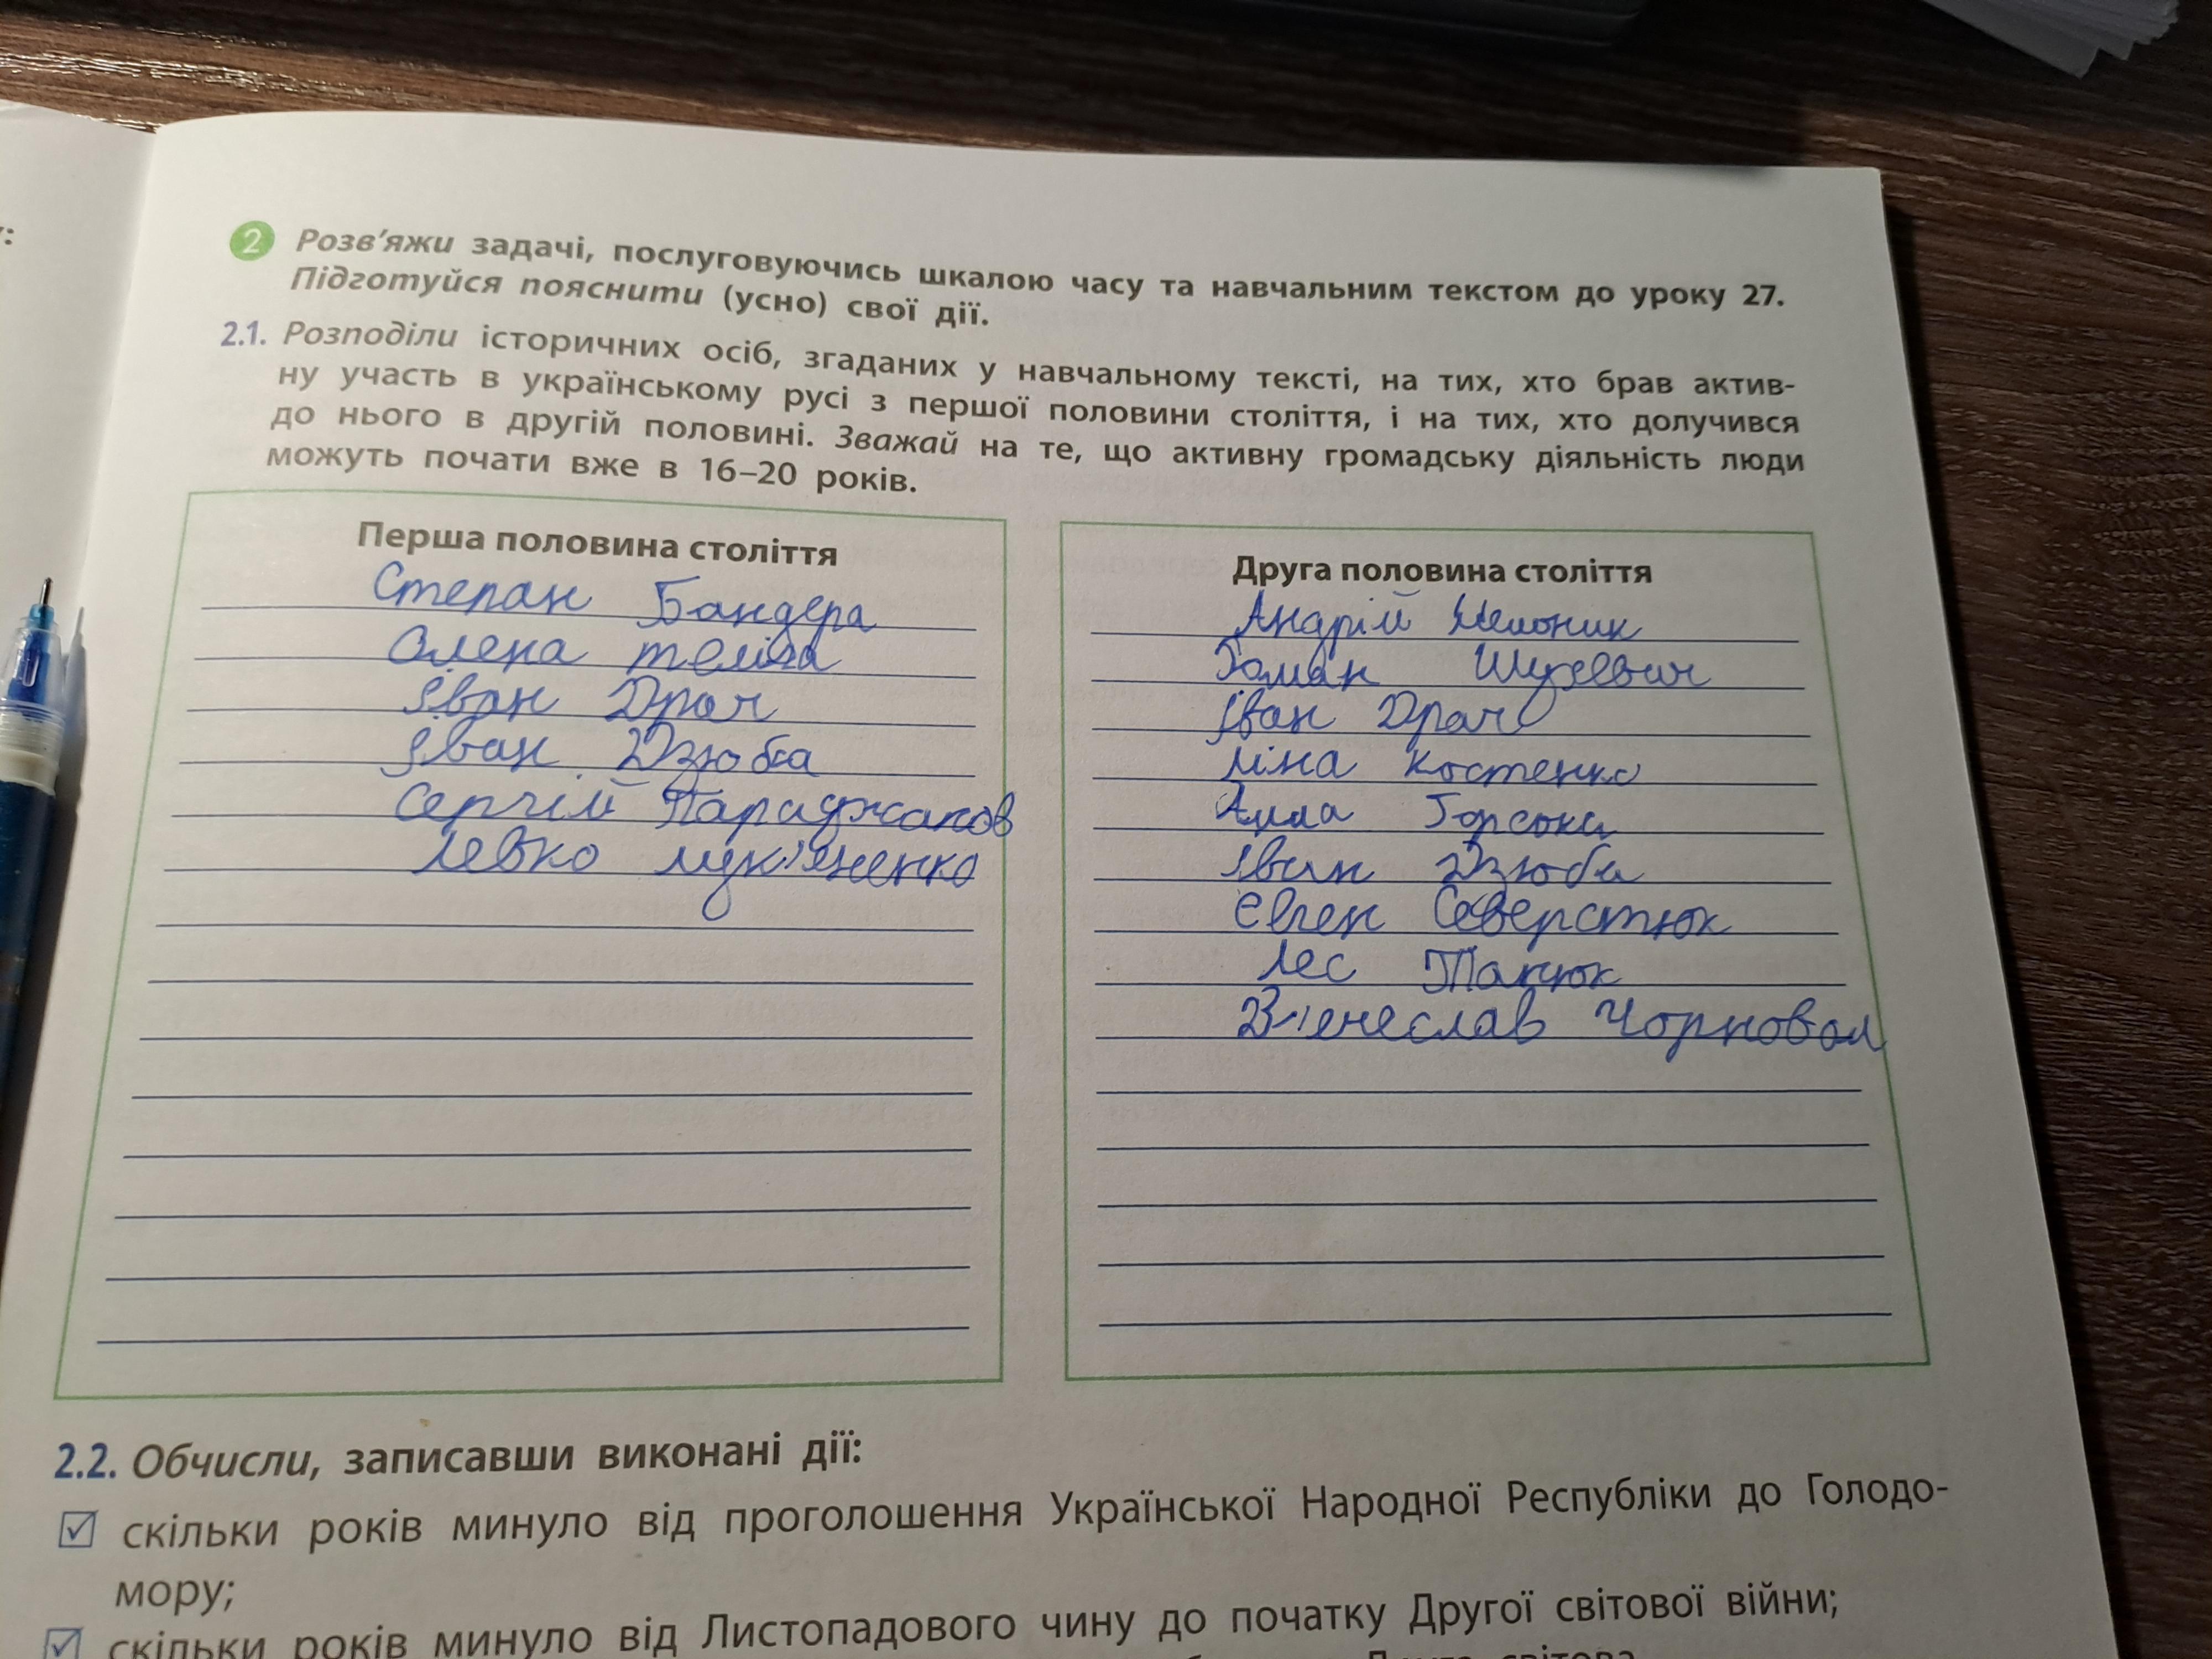 2 Розв'яжи задачі, послуговуючись шкалою часу та навчальним текстом до уроку 27.
Підготуйся пояснити (усно) свої дії.
2.1. Розподіли історичних осіб, згаданих у навчальному тексті, на тих, хто брав актив-
ну участь в українському русі з першої половини століття, і на тих, хто долучився
до нього в другій половині. Зважай на те, що активну громадську діяльність люди
можуть почати вже в 16–20 років.
Перша половина століття
Степан Бандера
Олена теліга
Іван Драч
Іван Дзюба
Сергій Параджанов
Левко лук'яненко
Друга половина століття
Андрій Мельник
Роман Шухевич
Іван Драч
ліна костенко
Алла Горська
Іван Дзюба
Євген Сверстюк
Лес Танюк
В'ячеслав Чорновол
2.2. Обчисли, записавши виконані дії:
скільки років минуло від проголошення Української Народної Республіки до Голодо-
мору;
скільки років минуло від Листопадового чину до початку Другої світової війни;